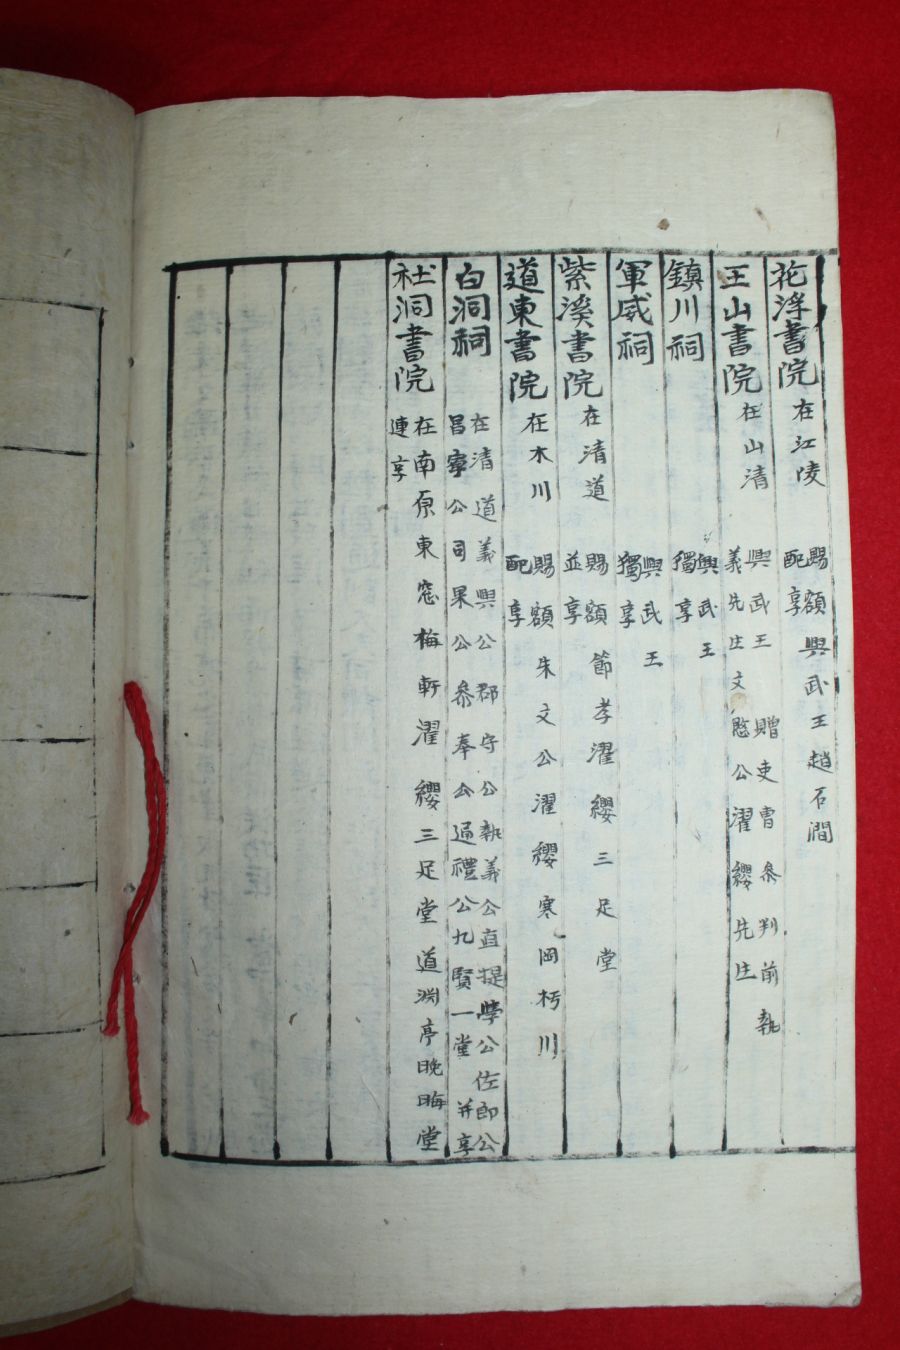 花浮書院 在江陵 賜額 興武王 趙石澗
配享
王山書院 在山清 興武王 贈吏曹參判前執
義先生文愍公濯纓先生
鎮川祠 興武王
獨享
軍威祠 興武王
獨享
紫溪書院 在清道 賜額 節孝 濯纓 三足堂
並享
道東書院 在木川 賜額 朱文公 濯纓 寒岡 朽川
配享
白洞祠 在清道 義興公 郡守公 執義公 直提學公 佐郎公
昌寧公 司果公 參奉公 通禮公 九賢一堂并享
社洞書院 在南原 東窓 梅軒 濯纓 三足堂 道淵亭 晚晦堂
連享